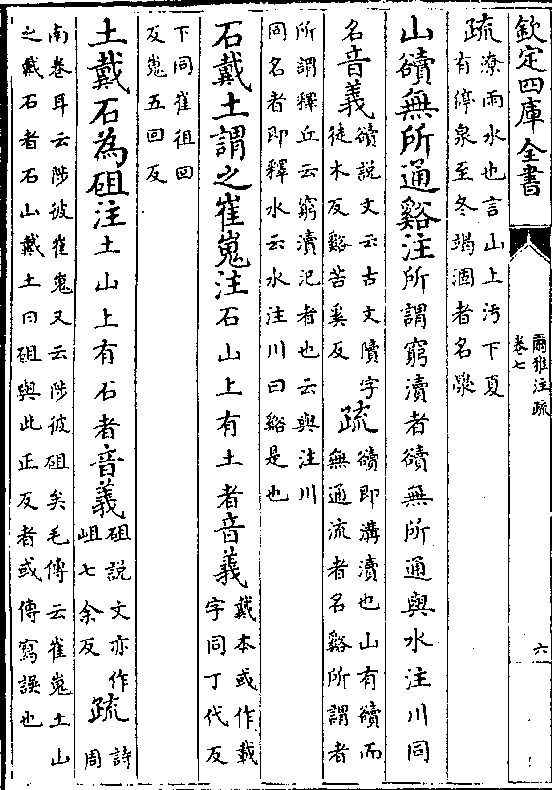 欽定四庫全書
爾雅注疏
卷七
六
疏
潦雨水也言山上汚下夏
有停泉至冬竭涸者名㶟
山䝱無所通谿注所謂窮瀆者䝱無所通與水注川同
名音義
䝱説文云古文隫字
徒木反谿苦奚反
疏
䝱即溝瀆也山有䝱而
無通流者名谿所謂者
所謂釋丘云窮瀆汜者也云與注川
同名者即釋水云水注川曰谿是也
石戴土謂之崔嵬注石山上有土者音義
戴本或作載
字同丁代反
下同崔徂回
反嵬五回反
土戴石為砠注土山上有石者音義
砠説文亦作
岨七余反
疏
詩
周
南卷耳云陟彼崔嵬又云陟彼砠矣毛傳云崔嵬土山
之戴石者石山戴土曰砠與此正反者或傳寫誤也